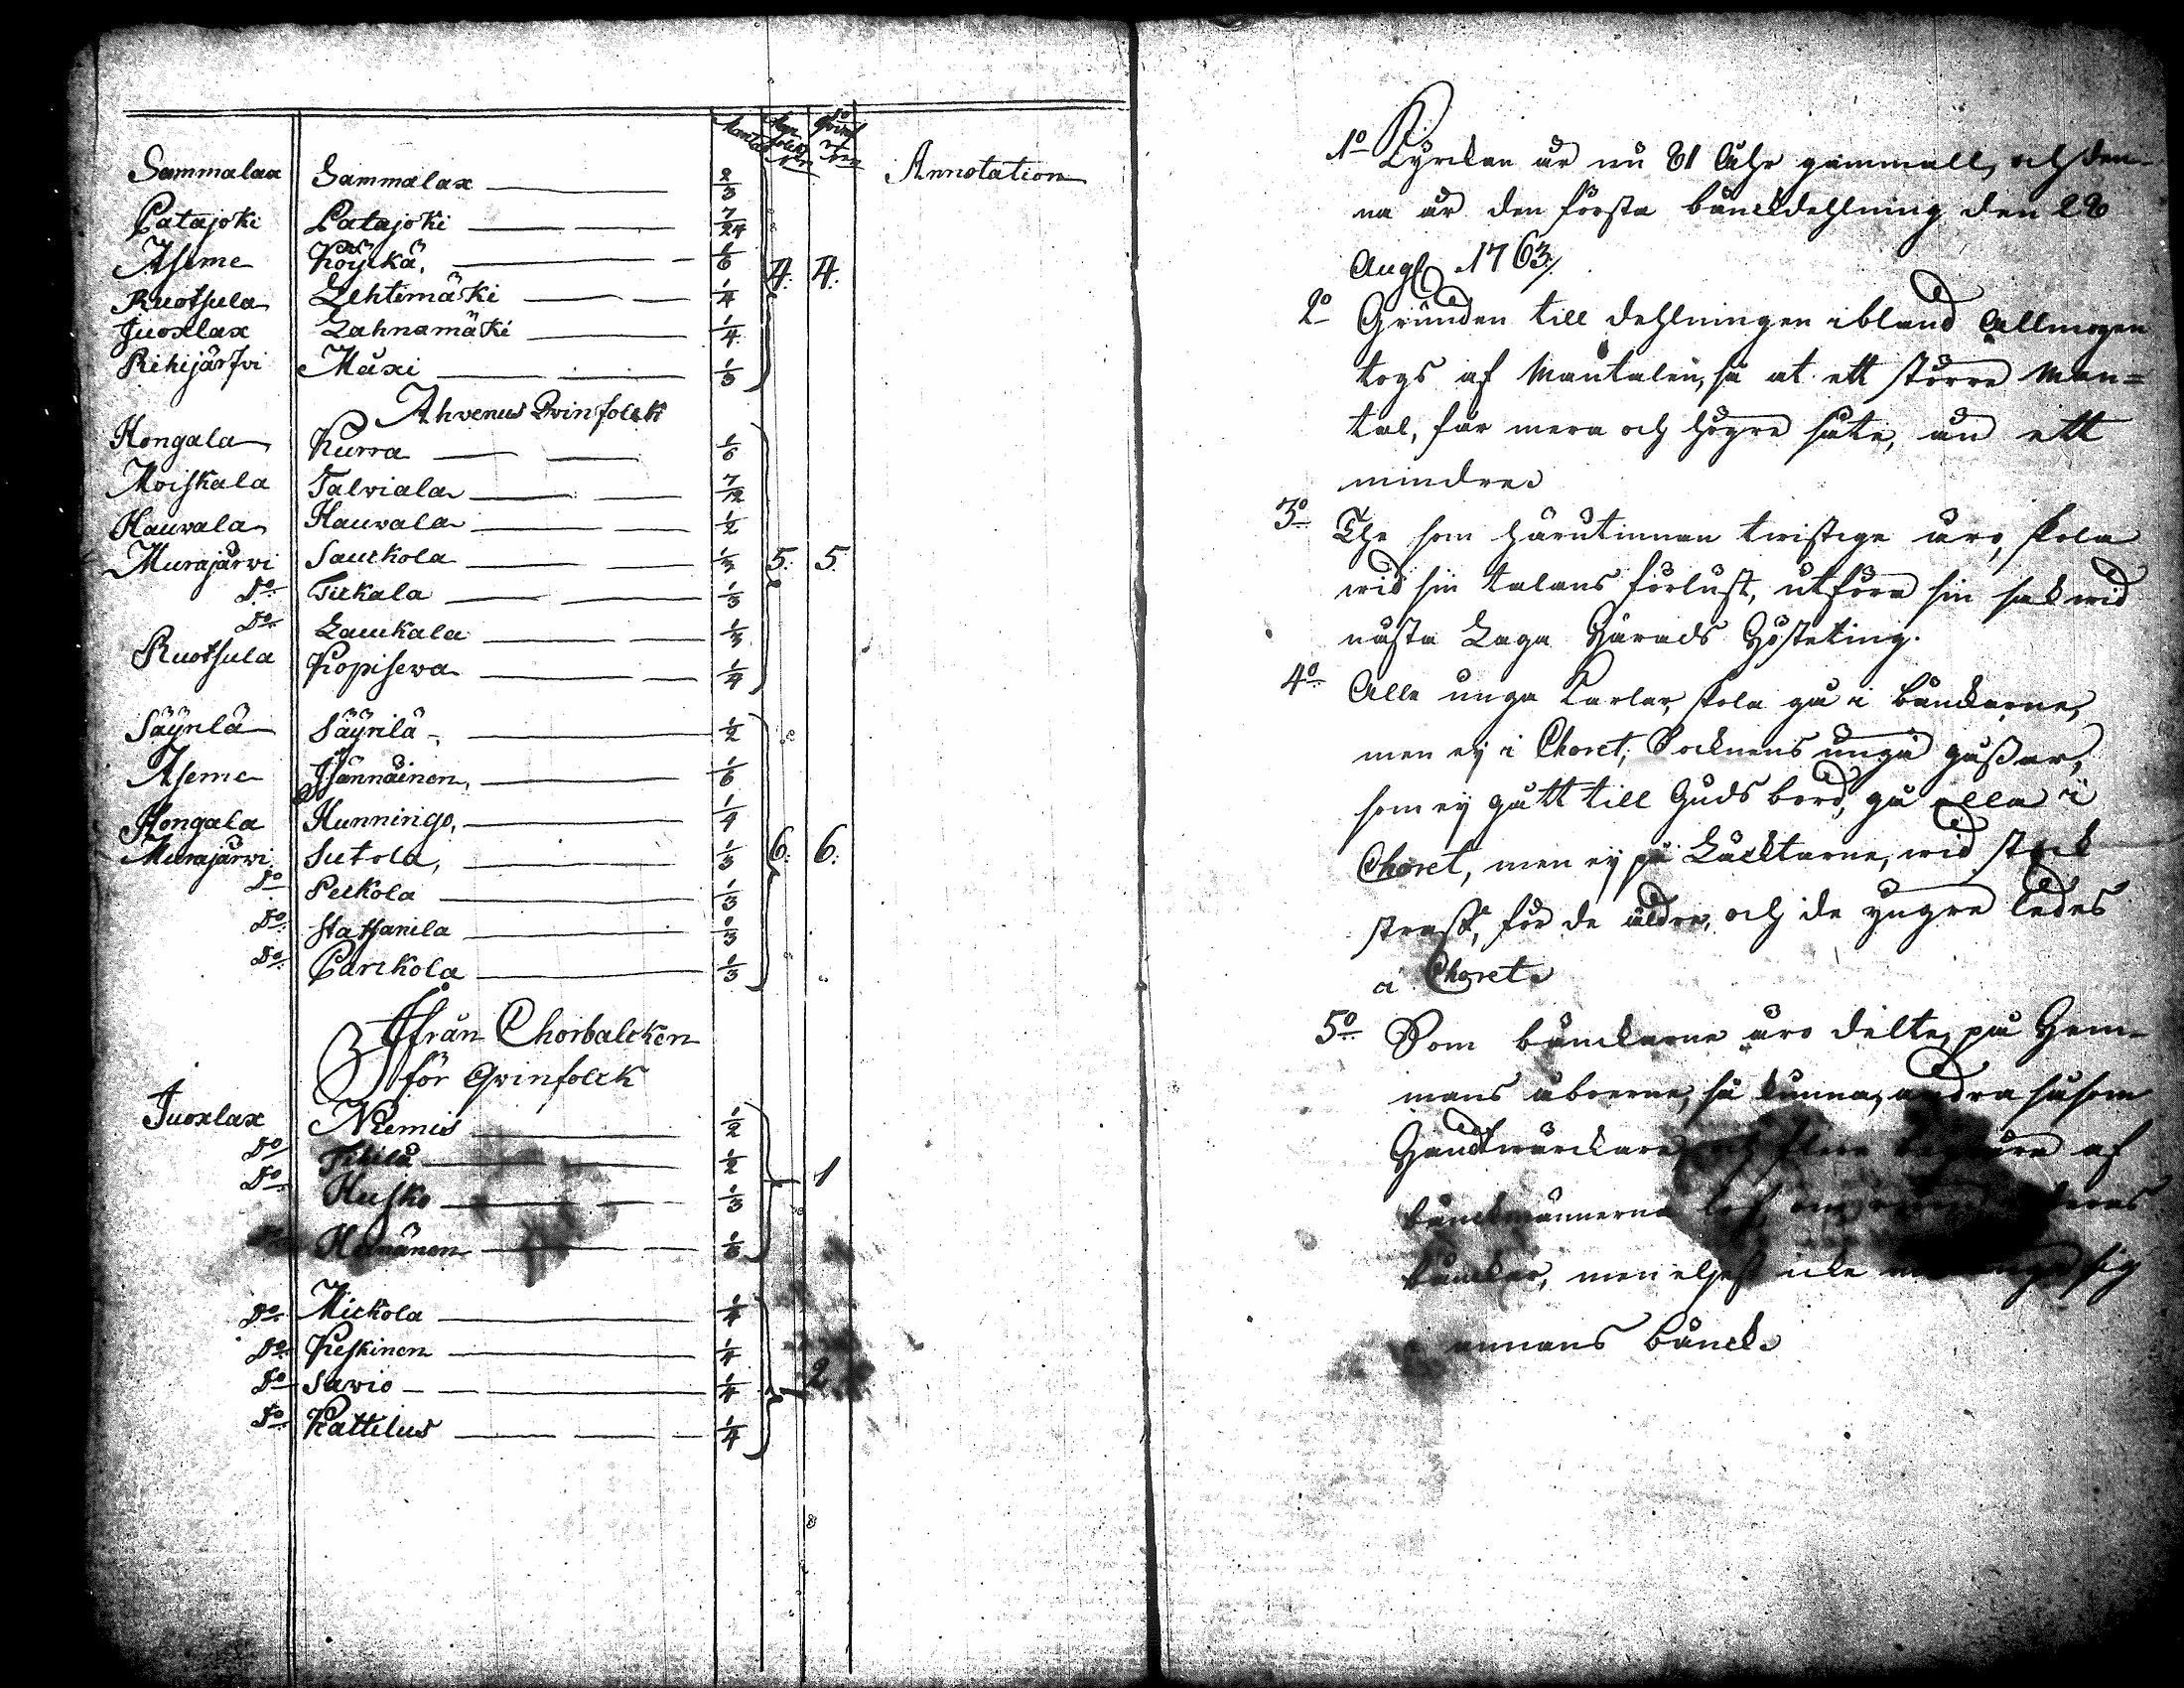 Mantal
Annotation
Sammalax Sammalax 2/3
Patajoki Patajoki 7/24
Aseme Köyckä, 1/6 4. 4.
Ruotsula Lehtimäki 1/4
Juoxlax Lahnamäki 1/4
Rihijärfvi Maxi 1/3
Ahvenus Qvinfolck
Hongala Kurra 1/6
Moiskala Talviala 7/12
Hauvala Hauvala 1/2
Murajärvi Sauckola 1/3 5. 5.
Do Tickala 1/3
Do Lauckala 1/3
Ruotsula Kopiseva 1/4
Säynlä Säynilä 1/2
Aseme Isännäinen, 1/6
Hongala Hunningo, 1/4
Murajärvi Sutola, 1/3 6. 6.
Do Peckola 1/3
Do Staffanila 1/3
Do Parckola 1/3
Ifrån Chorbalcken
för Qvinfolck
Juoxlax Niemis 1/2
Do 1/2 1
Do Husko 1/3
Hanänen 1/3
Do Mickola 1/4
Do Keskinen 1/4
Do Savio 1/4 2
Do Kattilus 1/4
1o Kyrckan är nu 81 Åhr gammall, och den-
na är den första bänckdehlning den 28
Aug. 1763./
2o Grunden till dehlningen ibland Allmogen
togs af Mantalen, så at ett större Man=
tal, får mera och högre säte, än ett
mindre
3o The som härutinnan twistige äro, skola
wid sin talans förlust, utföra sin sak wid
nästa Laga Härads Hösteting.
4o Alla unga Karlar, skola gå i bänckarne,
men ej i Choret, Socknens unga gåssar,
som ej gått till Guds bord, gå alla i
Choret, men ej på Läcktarne, wid stock
straff, för de äldre, och de yngre ledes
i Choret.
5o Som bänckarne äro delte, på Hem-
mans åboerne, så kunna, andra såsom
Handtwärckare och flere af
bänckmännerne deras
bänckar, men eljest icke sig
i annans bänck.